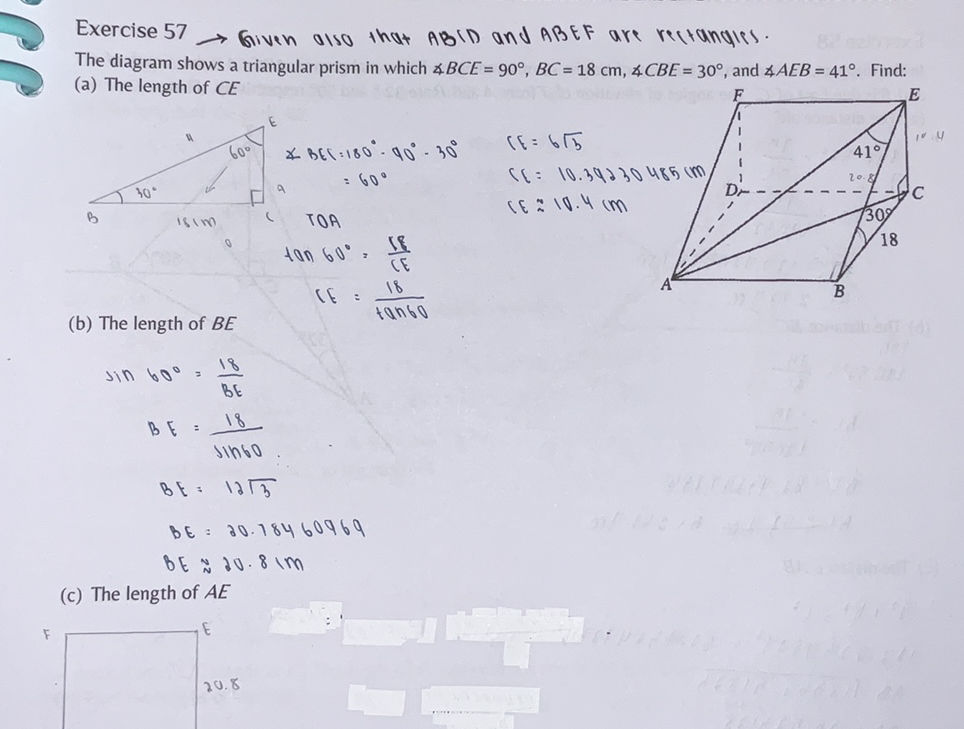 Exercise 57 → Given also that ABCD and ABEF are rectangles.
The diagram shows a triangular prism in which ∡BCE = 90°, BC = 18 cm, ∡CBE = 30°, and ∡AEB = 41°. Find:
(a) The length of CE
F E
H E
60°
30°
B 18cm C
a
O
∡ BEC = 180° - 90° - 30°
= 60°
TOA
tan 60° = 18/CE
CE = 18/tan60
CE = 6√3
CE = 10.39230485 cm
CE ≈ 10.4 cm
10.4
41°
20.8
D C
30°
18
A B
(b) The length of BE
sin 60° = 18/BE
BE = 18/sin60
BE = 12√3
BE = 20.78460969
BE ≈ 20.8 cm
(c) The length of AE
F E
20.8